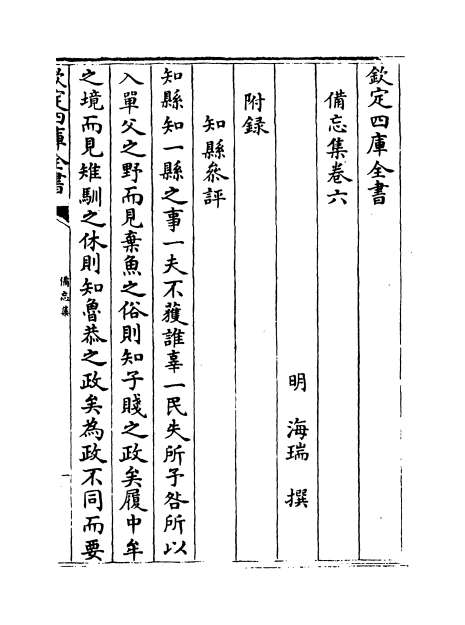 欽定四庫全書
備忘集卷六
明　海瑞　撰
附録
知縣叅評
知縣知一縣之事一夫不獲誰辜一民失所予咎所以
入單父之野而見棄魚之俗則知子賤之政矣履中牟
之境而見雉馴之休則知魯恭之政矣為政不同而要
欽定四庫全書
備忘集
一